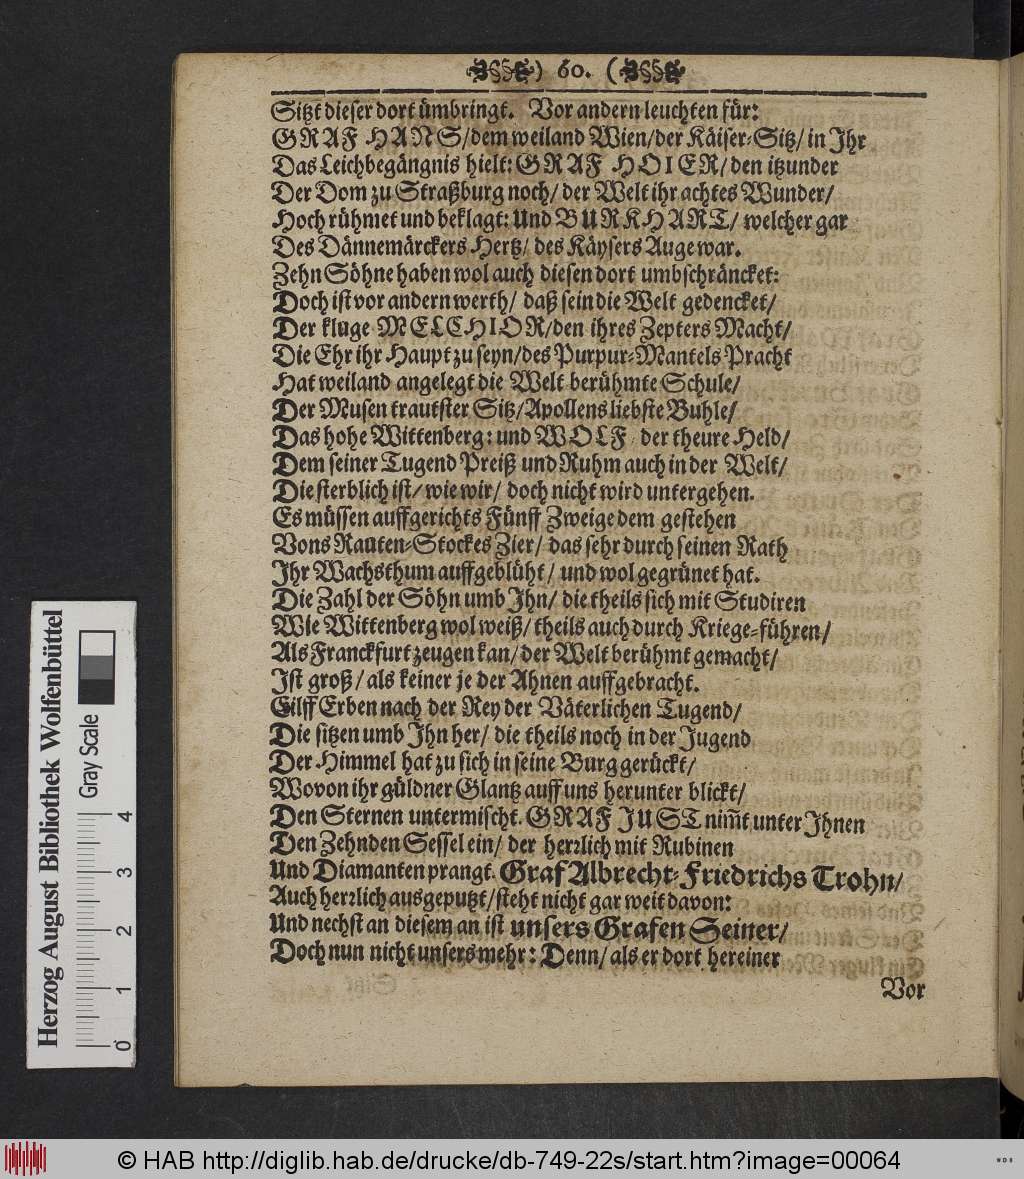 ) 60. (
Sitzt dieser dort ümbringt. Vor andern leuchten für:
GRAF HANS/dem weiland Wien/der Käiser-Sitz/ in Ihr
Das Leichbegängnis hielt: GRAF HOIER/ den itzunder
Der Dom zu Straßburg noch/ der Welt ihr achtes Wunder/
Hoch rühmet und beklagt: Und BURKHART/ welcher gar
Des Dännemärckers Hertz/ des Käysers Auge war.
Zehn Söhne haben wol auch diesen dort umbschräncket:
Doch ist vor andern werth/ daß sein die Welt gedencket/
Der kluge MELCHIOR/den ihres Zepters Macht/
Die Ehr ihr Haupt zu seyn/des Purpur-Mantels Pracht
Hat weiland angelegt die Welt berühmte Schule/
Der Musen trautster Sitz/Apollens liebste Buhle/
Das hohe Wittenberg: und WOLF/ der theure Held/
Dem seiner Tugend Preiß und Ruhm auch in der Welt/
Die sterblich ist/ wie wir/ doch nicht wird untergehen.
Es müssen auffgerichts Fünff Zweige dem gestehen
Vons Rauten-Stockes Zier/ das sehr durch seinen Rath
Ihr Wachsthum auffgeblüht/ und wol gegrünet hat.
Die Zahl der Söhn umb Ihn/ die theils sich mit Studiren
Wie Wittenberg wol weiß/ theils auch durch Kriege-führen/
Als Franckfurt zeugen kan/ der Welt berühmt gemacht/
Ist groß/ als keiner je der Ahnen auffgebracht.
Eilff Erben nach der Rey der Väterlichen Tugend/
Die sitzen umb Ihn her/ die theils noch in der Jugend
Der Himmel hat zu sich in seine Burg gerückt/
Wovon ihr güldner Glantz auff uns herunter blickt/
Den Sternen untermischt. GRAF JUST nim̅t unter Ihnen
Den Zehnden Sessel ein/ der herrlich mit Rubinen
Und Diamanten prangt. Graf Albrecht-Friedrichs Trohn/
Auch herrlich ausgeputzt/steht nicht gar weit davon:
Und nechst an diesem an ist unsers Grafen Seiner/
Doch nun nicht unsers mehr: Denn/ als er dort hereiner
Vor
Herzog August Bibliothek Wolfenbüttel
Gray Scale
0 1 2 3 4
© HAB http://diglib.hab.de/drucke/db-749-22s/start.htm?image=00064